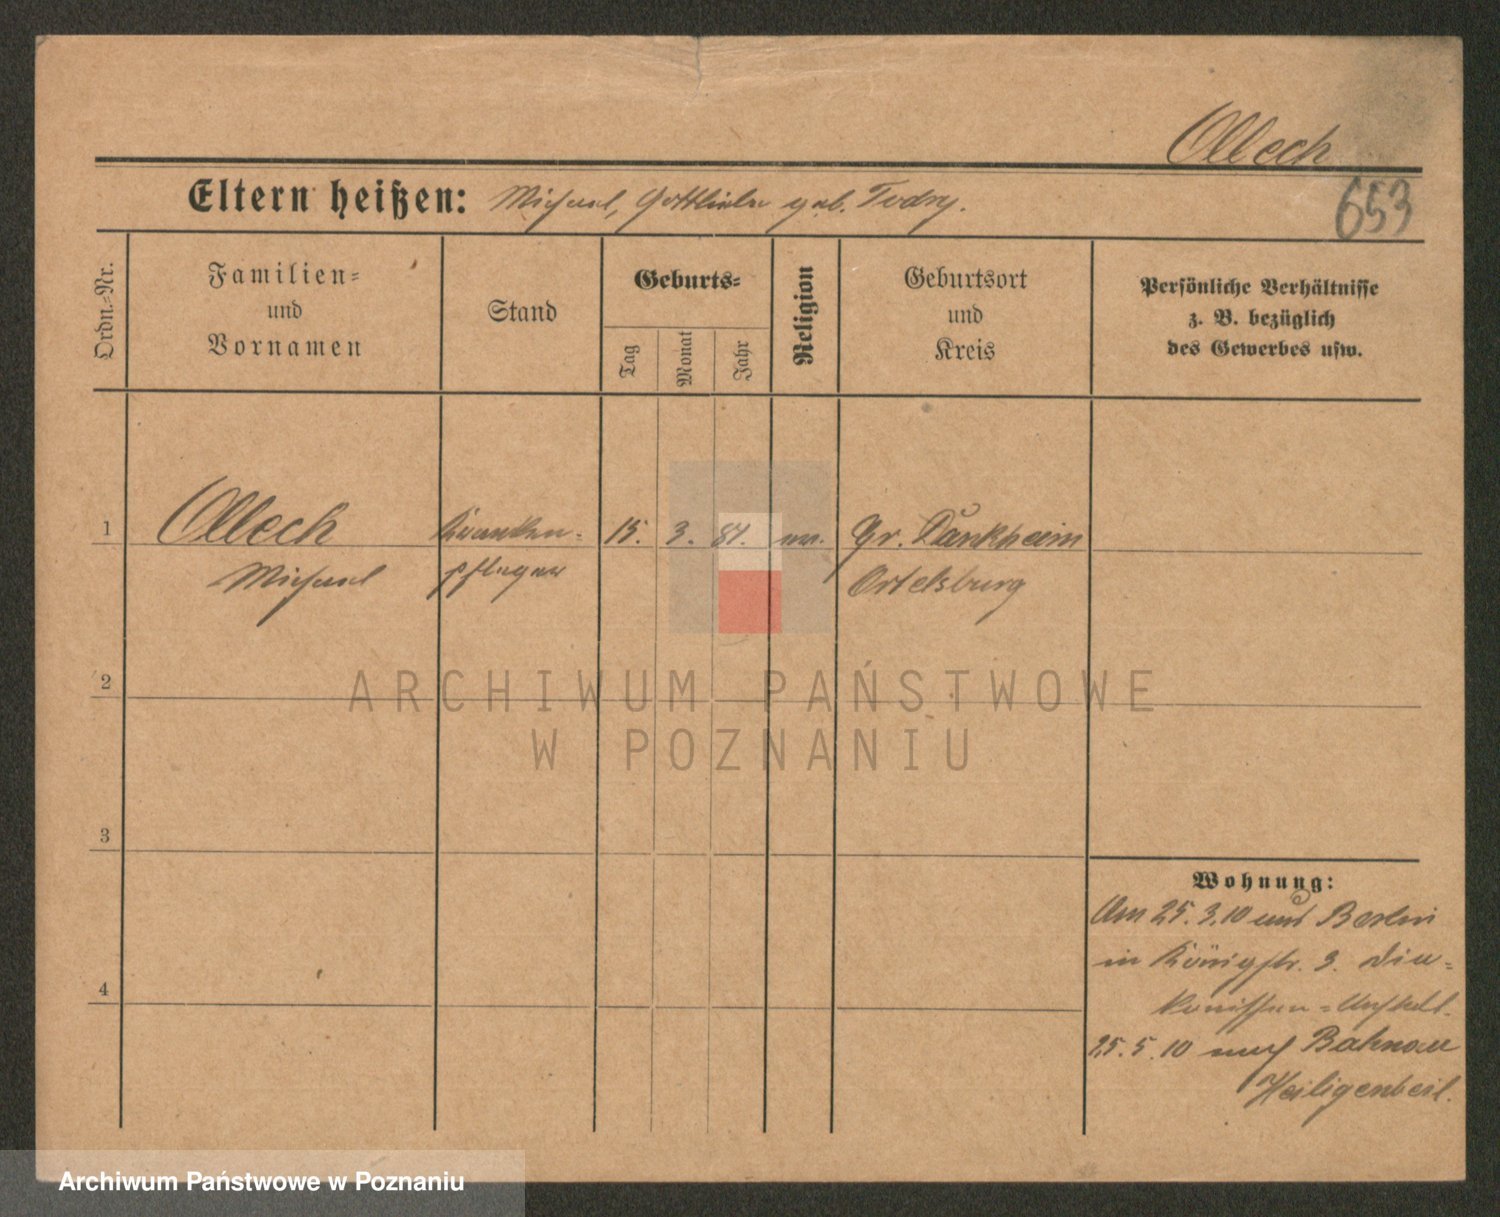 Ollech
Eltern heißen: Michael, Gottliebe geb. Today.
653
Ordn.-Nr.
Familien-
und
Vornamen
Stand
Geburts-
Tag
Monat
Jahr
Religion
Geburtsort
und
Kreis
Persönliche Verhältnisse
z. B. bezüglich
des Gewerbes usw.
1
Ollech
Michael
Kranken-
pfleger
15. 3. 81. ev.
Gr. Dankheim
Ortelsburg
2
ARCHIWUM PAŃSTWOWE
W POZNANIU
3
4
Wohnung:
Am 25.3.10 aus Berlin
in Königstr. 3. Dia-
konissen-Anstalt.
25.5.10 nach Bahnau
Heiligenbeil.
Archiwum Państwowe w Poznaniu